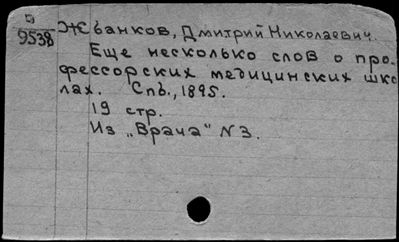 Жбанков, Дмитрий Николаевич.
9538
Еще несколько слов о про-
фессорских медицинских шко
лах. Спб., 1895.
19 стр.
Из „Врача" N 3.